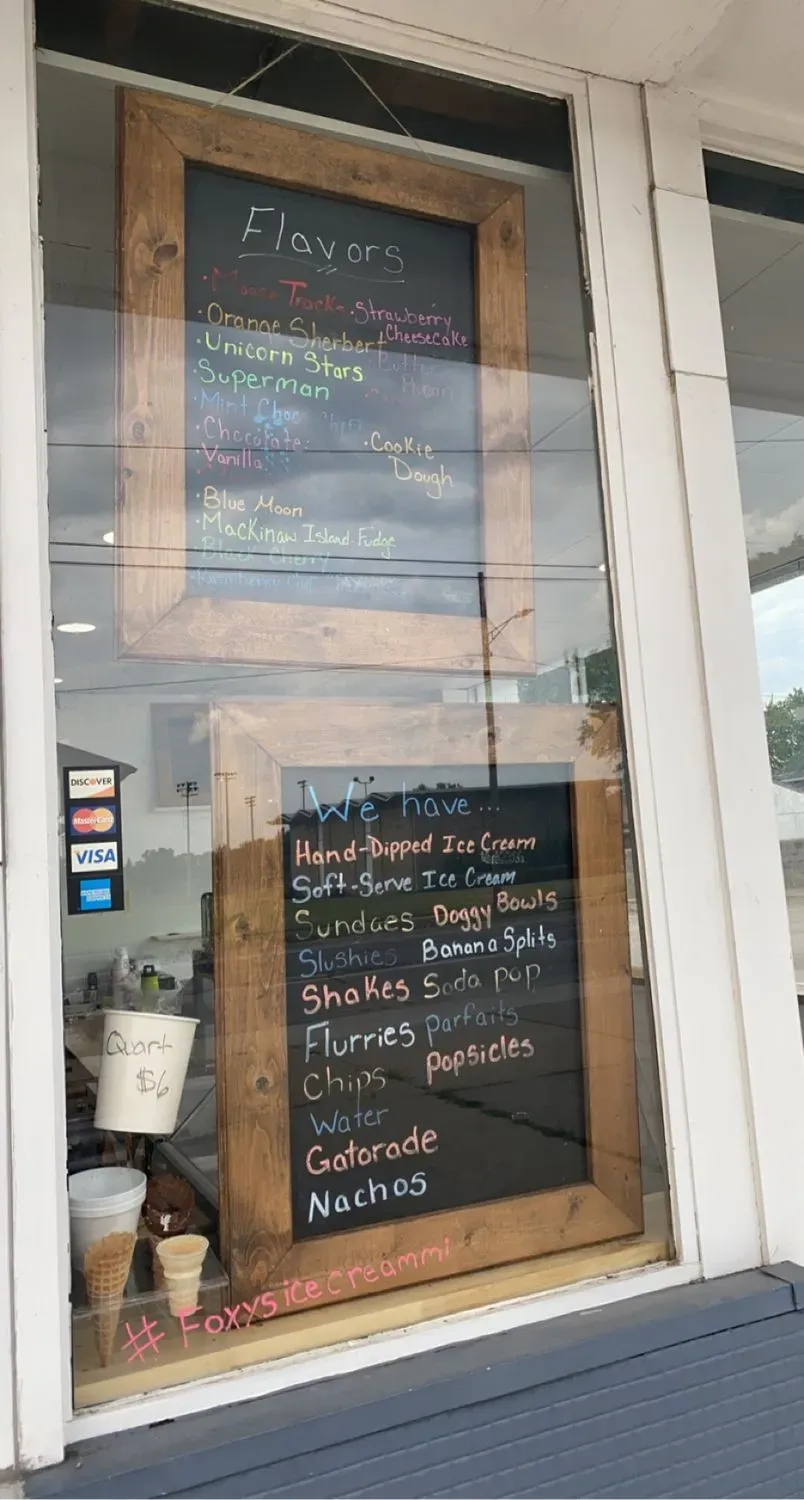 Flavors
· Moose Tracks
· Strawberry
Cheesecake
· Orange Sherbert
Butter
Pecan
· Unicorn Stars
· Superman
· Mint Choc Chip
· Chocolate
· Vanilla
· Cookie
Dough
· Blue Moon
· Mackinaw Island Fudge
· Black Cherry
We have...
Hand-Dipped Ice Cream
Soft-Serve Ice Cream
Sundaes Doggy Bowls
Slushies Banana Splits
Shakes Soda pop
Flurries Parfaits
Chips Popsicles
Water
Gatorade
Nachos
DISCOVER
MasterCard
VISA
AMERICAN EXPRESS
Quart
$6
# Foxysicecreammi